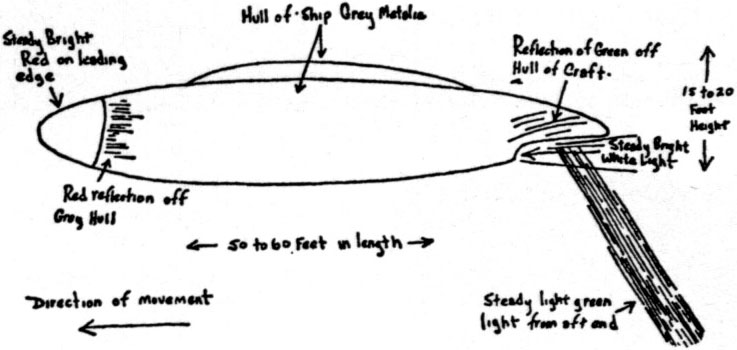 Hull of Ship Grey Metalic
Steady Bright
Red on leading
edge
Reflection of Green off
Hull of Craft.
15 to 20
Foot
Height
Steady Bright
White Light
Red reflection off
Grey Hull
50 to 60 Feet in length
Direction of movement
Steady light green
light from aft end